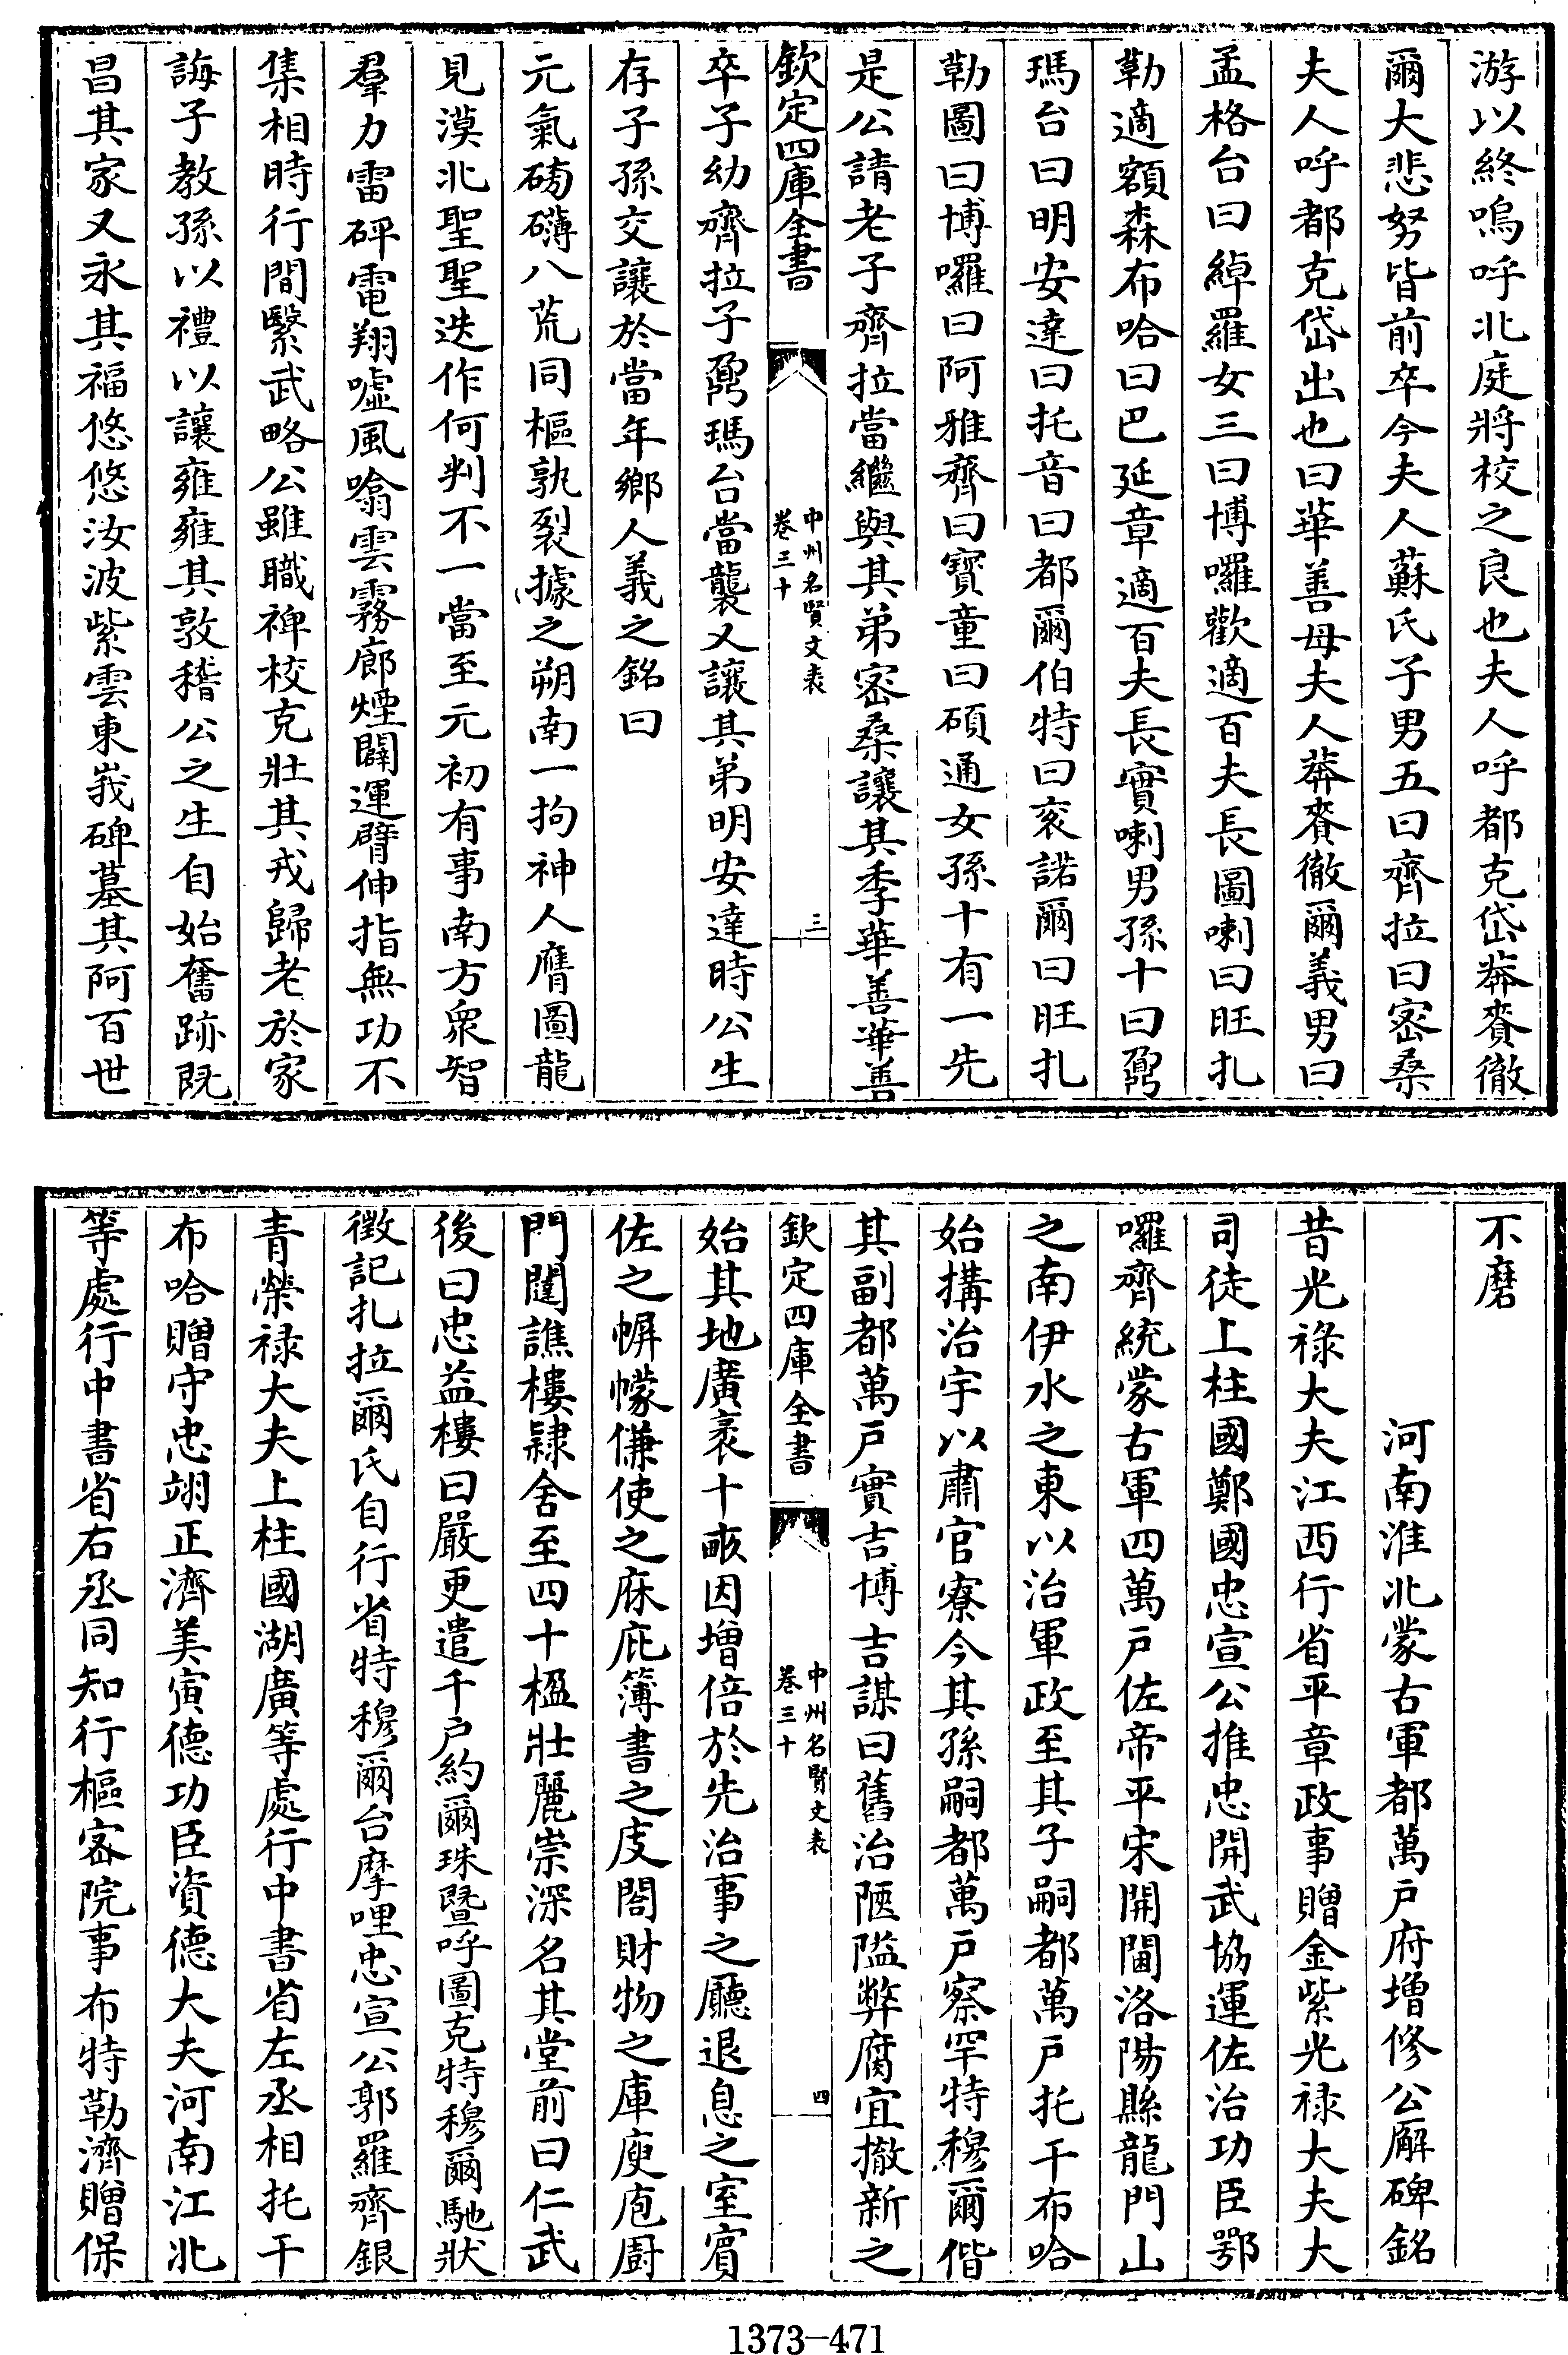 游以終嗚呼北庭將校之良也夫人呼都克岱莽賚徹
爾大悲努皆前卒今夫人蘇氏子男五曰齊拉曰密桑
夫人呼都克岱出也曰華善母夫人莽賚徹爾義男曰
孟格台曰綽羅女三曰博囉歡適百夫長圖喇曰旺扎
勒適額森布哈曰巴延章適百夫長實喇男孫十曰鼐
瑪台曰明安達曰托音曰都爾伯特曰衮諾爾曰旺扎
勒圖曰博囉曰阿雅齊曰寳童曰碩通女孫十有一先
是公請老子齊拉當繼與其弟密桑讓其季華善華善
欽定四庫全書
中州名賢文表
卷三十
三
卒子幼齊拉子鼐瑪台當襲又讓其弟明安達時公生
存子孫交讓於當年鄉人義之銘曰
元氣磅礴八荒同樞孰裂據之朔南一拘神人膺圖龍
見漠北聖聖迭作何判不一當至元初有事南方衆智
羣力雷砰電翔噓風噏雲霧廊煙闢運臂伸指無功不
集相時行間繄武略公雖職裨校克壯其戎歸老於家
誨子教孫以禮以讓雍雍其敦稽公之生自始奮跡既
昌其家又永其福悠悠汝波紫雲東峩碑墓其阿百世
不磨
河南淮北蒙古軍都萬戶府增修公廨碑銘
昔光祿大夫江西行省平章政事贈金紫光祿大夫大
司徒上柱國鄭國忠宣公推忠開武協運佐治功臣鄂
囉齊統蒙古軍四萬戶佐帝平宋開閫洛陽縣龍門山
之南伊水之東以治軍政至其子嗣都萬戶托干布哈
始搆治宇以肅官寮今其孫嗣都萬戶察罕特穆爾偕
其副都萬戶實吉博吉謀曰舊治陋隘弊腐宜撤新之
欽定四庫全書
中州名賢文表
卷三十
四
始其地廣袤十畝因增倍於先治事之廳退息之室賓
佐之幈幪傔使之庥庇簿書之庋閣財物之庫庾庖廚
門闥譙樓隸舍至四十楹壯麗崇深名其堂前曰仁武
後曰忠益樓曰嚴更遣千戶約爾珠暨呼圖克特穆爾馳狀
徵記扎拉爾氏自行省特穆爾台摩哩忠宣公郭羅齊銀
青榮祿大夫上柱國湖廣等處行中書省左丞相托干
布哈贈守忠翊正濟美寅德功臣資德大夫河南江北
等處行中書省右丞同知行樞密院事布特勒濟贈保
1373-471